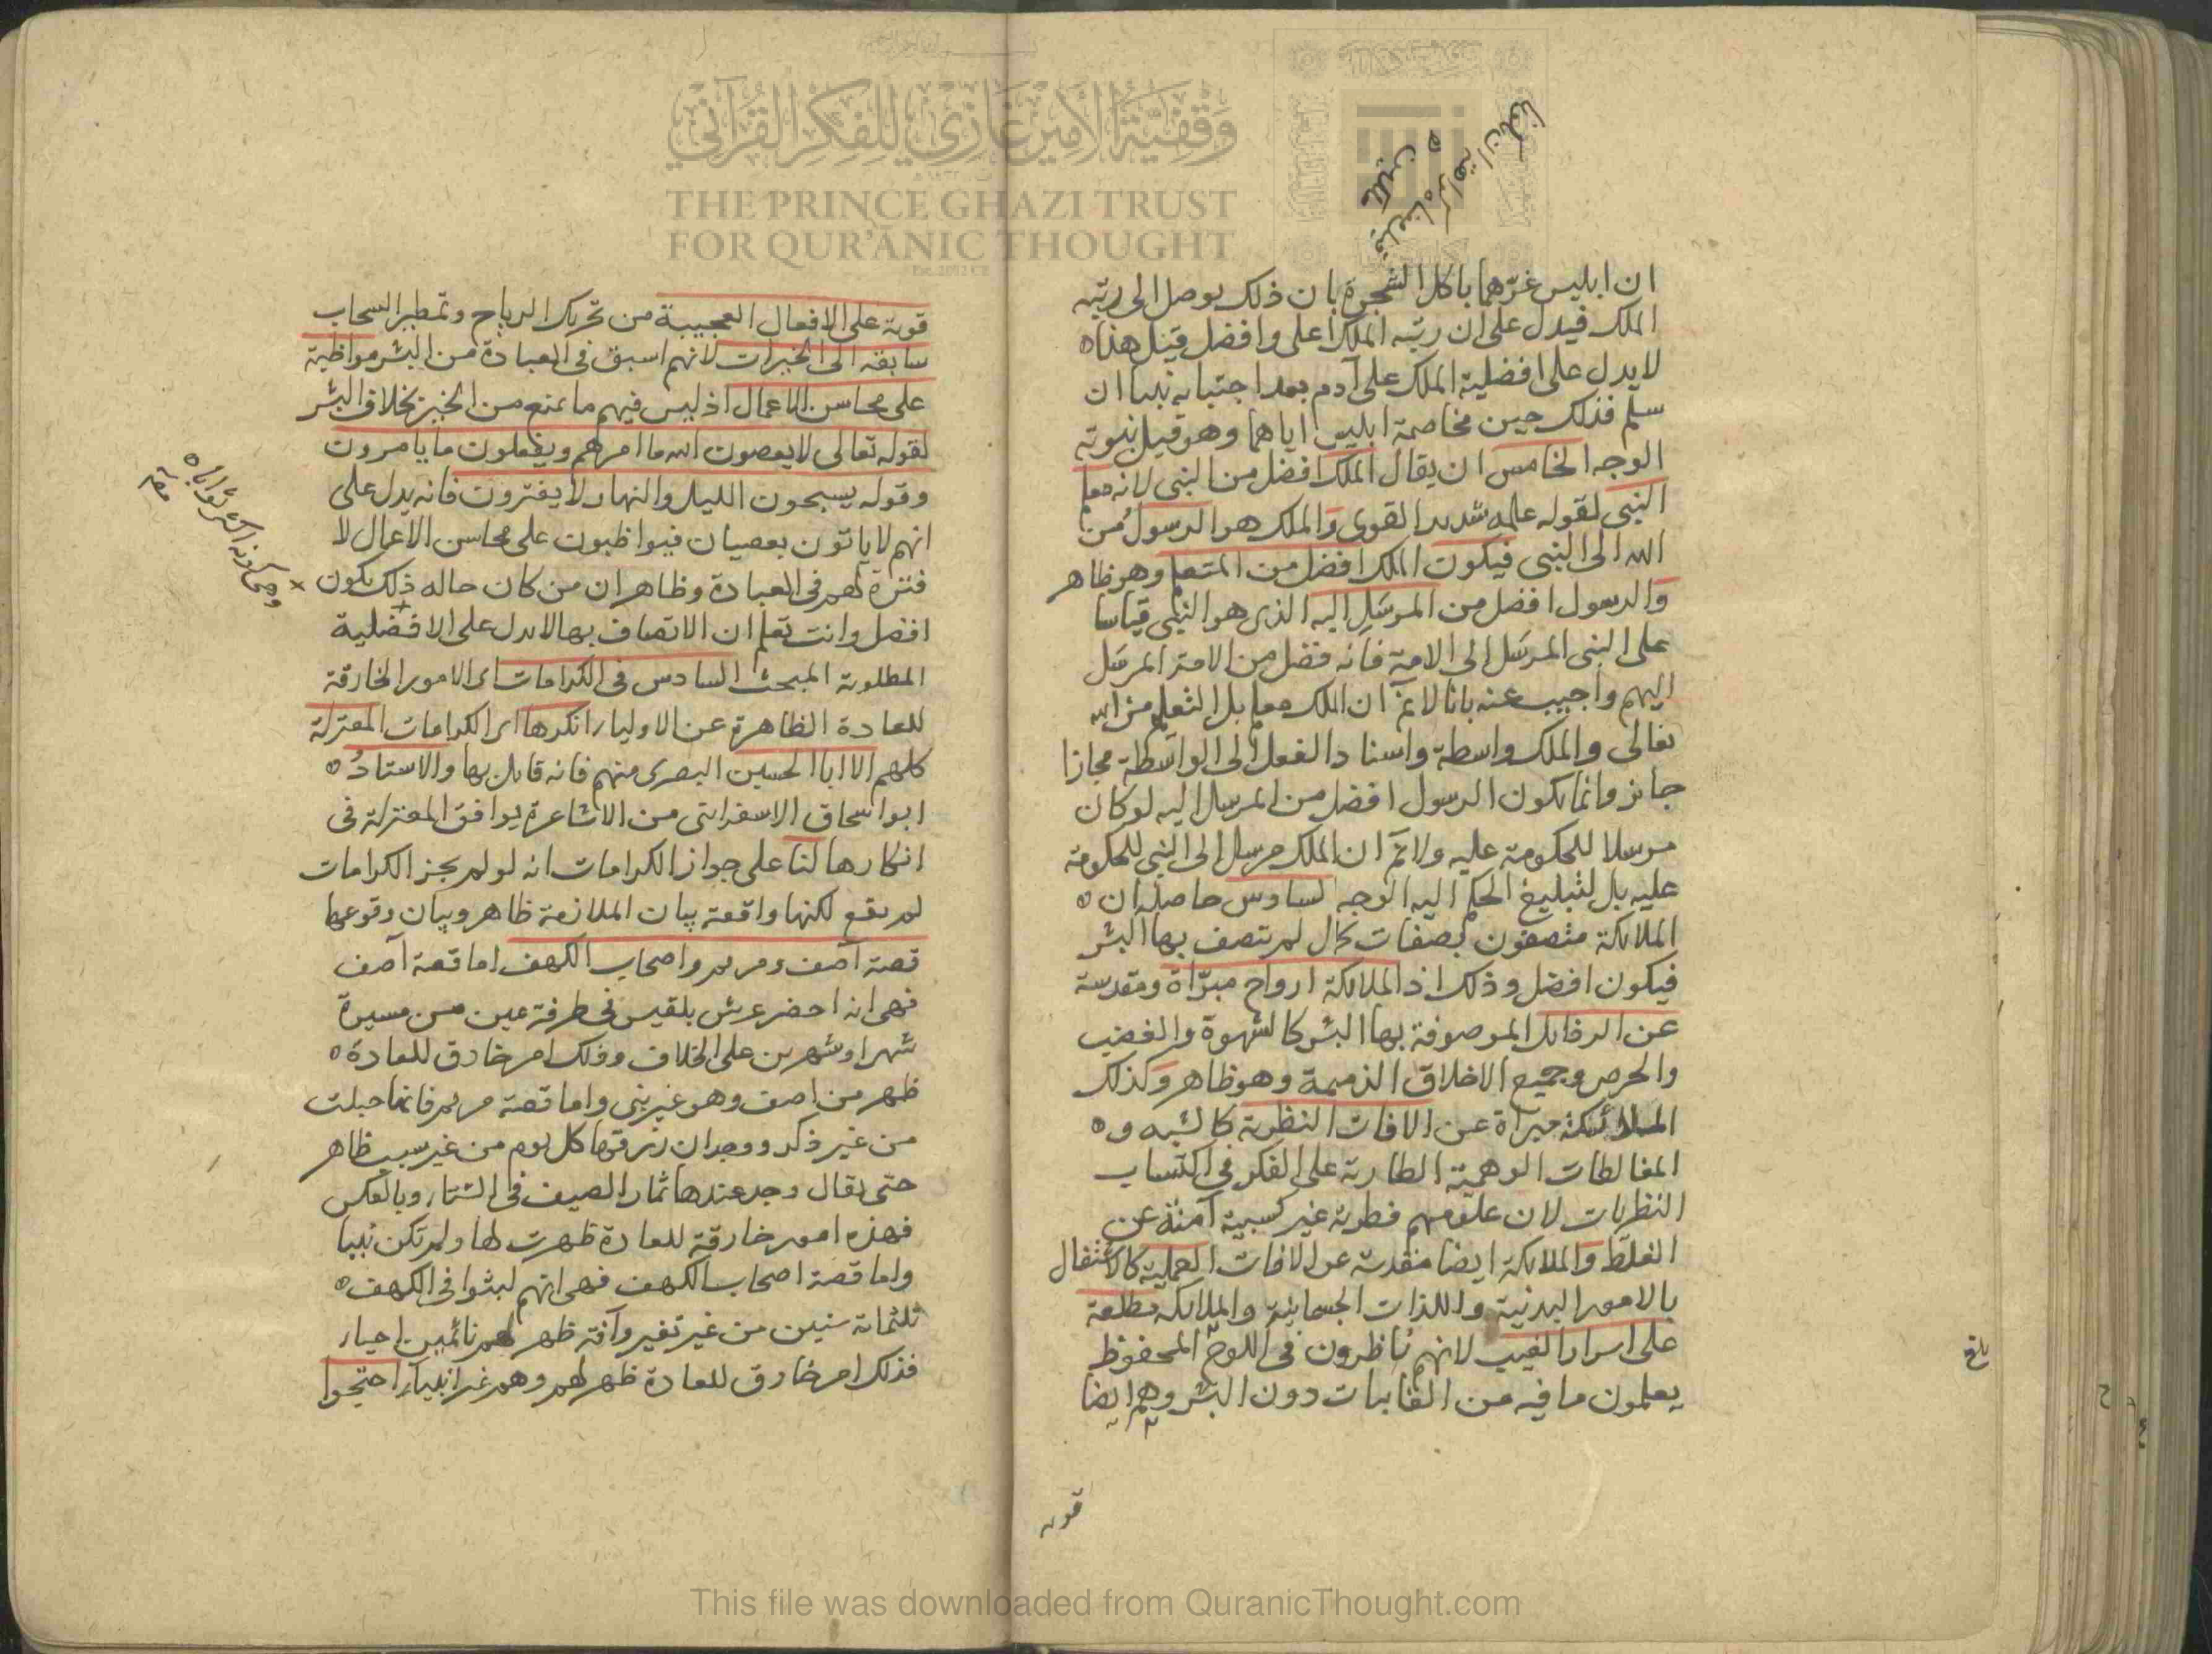 وقفية الأمير غازي للفكر القرآني
THE PRINCE GHAZI TRUST
FOR QUR'ĀNIC THOUGHT
ان ابليس غرّهما باكل الشجرة بان ذلك يوصل الى رتبه
الملك فيدل على ان رتبه الملك اعلى وافضل قيل هذا
لا يدل على افضلية الملك على آدم بعد اجتبايه نبيا ان
سلم فذلك حين مخاصمة ابليس اياهما وهو قبل نبوته
الوجه الخامس ان يقال الملك افضل من النبى لانه معلم
النبى لقوله علمه شديد القوى والملك هو الرسول من
الله الى النبى فيكون الملك افضل من المتعلم وهو ظاهر
والرسول افضل من المرسَل اليه الذى هو النبى قياسا
على النبى المرسَل الى الامة فانه فضل من الامة المرسَل
اليهم واجيب عنه بانا لانم ان الملك معلم بل التعليم من الله
تعالى والملك واسطة واسناد الفعل الى الواسطة مجازا
جائز وانما يكون الرسول افضل من المرسل اليه لو كان
مرسلا للحكومة عليه ولانم ان الملك مرسل الى النبى للحكومة
عليه بل لتبليغ الحكم اليه الوجه السادس حاصله ان
الملائكة متصفون بصفات كمال لم تتصف بها البشر
فيكون افضل وذلك اذ الملائكة ارواح مبرّاة ومقدسة
عن الرذائل الموصوفة بها البشر كالشهوة والغضب
والحرص وجميع الاخلاق الذميمة وهو ظاهر وكذلك
الملائكة مبراة عن الافات النظرية كالشبه و
المغالطات الوهمية الطارية على الفكر فى اكتساب
النظريات لان علومهم فطرية غير كسبية آمنة عن
الغلط والملائكة ايضا متقدسة عن الافات العملية كالاشتغال
بالامور البدنية واللذات الجسمانية والملائكة مطلعة
على اسرار الغيب لانهم ناظرون فى اللوح المحفوظ
يعلمون ما فيه من الغايبات دون البشر وهم ايضا
قويه
بلغ
قوية على الافعال العجيبة من تحريك الرياح وتمطير السحاب
سابقه الى الخيرات لانهم اسبق فى العبادة من البشر مواظبة
على محاسن الاعمال اذ ليس فيهم ما يمنع من الخير بخلاف البشر
لقوله تعالى لا يعصون الله ما امرهم ويفعلون ما يامرون
وقوله يسبحون الليل والنهار لا يفترون فانه يدل على
انهم لا ياتون بعصيان فيواظبون على محاسن الاعمال لا
فترة لهم فى العبادة وظاهر ان من كان حاله ذلك يكون
افضل وانت تعلم ان الاتصاف بها لا يدل على الافضلية
المطلوبة المبحث السادس فى الكرامات اى الامور الخارقة
للعادة الظاهرة عن الاولياء انكرها اى الكرامات المعتزلة
كلهم الا ابا الحسين البصرى منهم فانه قايل بها والاستاذ
ابو اسحاق الاسفراينى من الاشاعرة يوافق المعتزلة فى
انكارها لنا على جواز الكرامات انه لو لم يجز الكرامات
لم يقع لكنها واقعة بيان الملازمة ظاهر وبيان وقوعها
قصة آصف ومريم واصحاب الكهف اما قصة آصف
فهى انه احضر عرش بلقيس فى طرفة عين من مسيرة
شهر او شهرين على الخلاف وذلك امر خارق للعادة
ظهر من اصف وهو غير نبى واما قصة مريم فانها حبلت
من غير ذكر ووجدان رزقها كل يوم من غير سبب ظاهر
حتى يقال وجد عندها ثمار الصيف فى الشتاء وبالعكس
فهذه امور خارقة للعادة ظهرت لها ولم تكن نبيا
واما قصة اصحاب الكهف فهى انهم لبثوا فى الكهف
ثلثمائة سنين من غير تغير وآفة ظهر لهم نائمين احياء
فذلك امر خارق للعادة ظهر لهم وهم غير انبياء احتجوا
This file was downloaded from QuranicThought.com